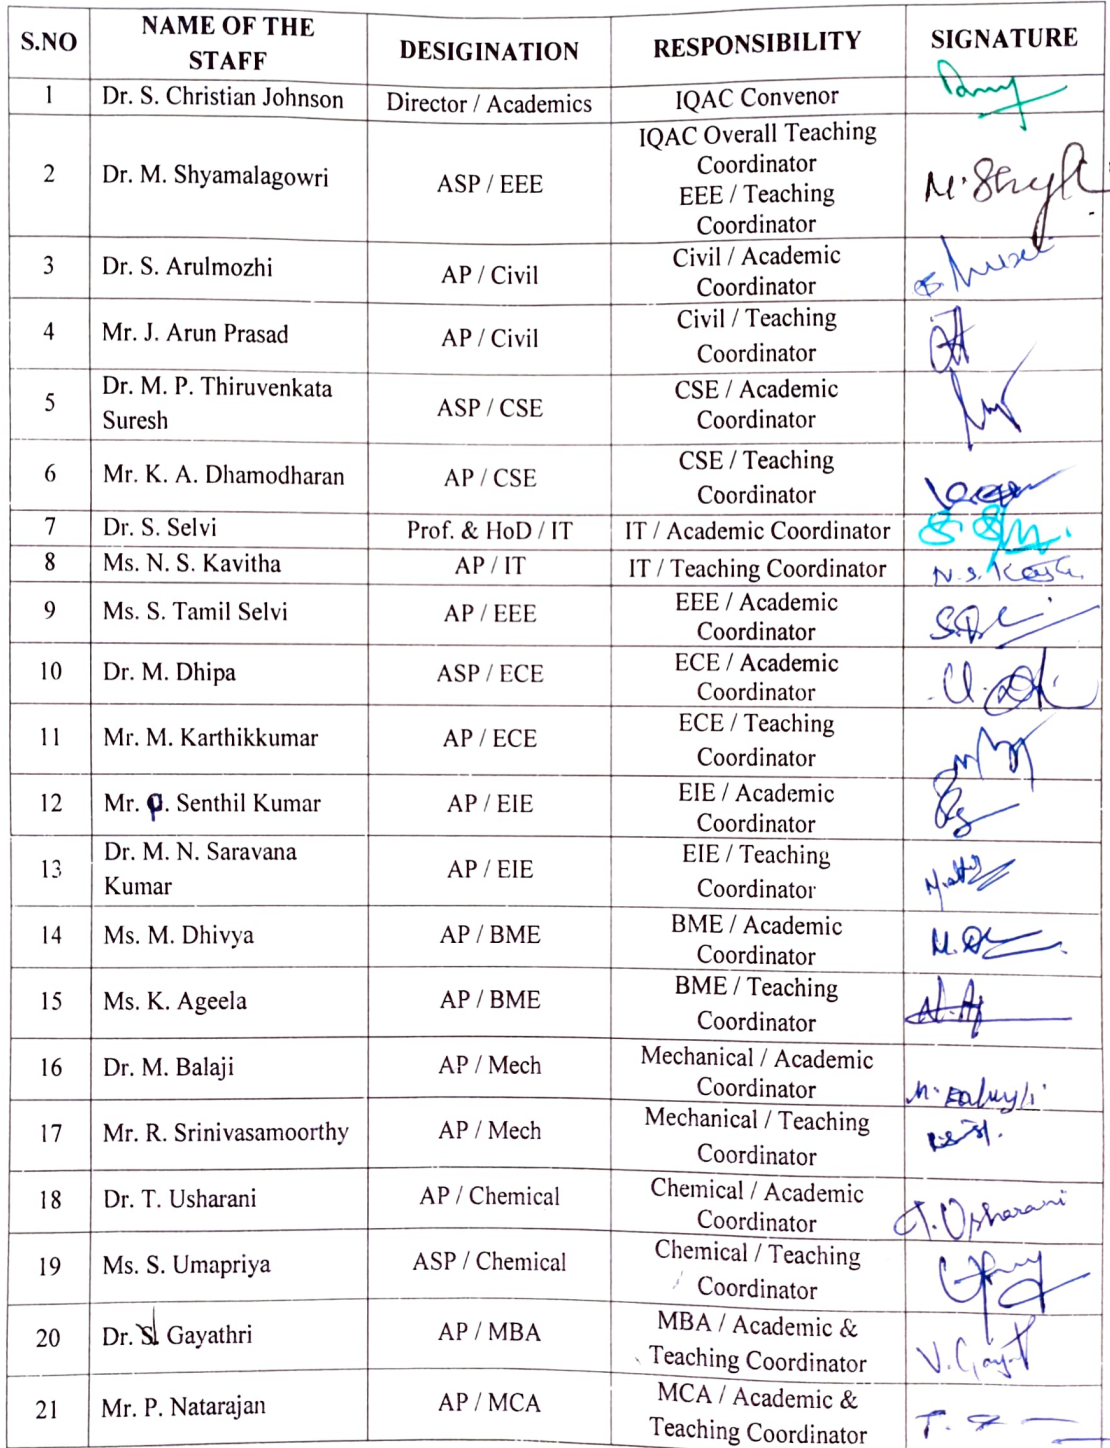 S.NO NAME OF THE STAFF DESIGINATION RESPONSIBILITY SIGNATURE
1 Dr. S. Christian Johnson Director / Academics IQAC Convenor
2 Dr. M. Shyamalagowri ASP / EEE IQAC Overall Teaching
Coordinator
EEE / Teaching
Coordinator
3 Dr. S. Arulmozhi AP / Civil Civil / Academic
Coordinator
4 Mr. J. Arun Prasad AP / Civil Civil / Teaching
Coordinator
5 Dr. M. P. Thiruvenkata
Suresh ASP / CSE CSE / Academic
Coordinator
6 Mr. K. A. Dhamodharan AP / CSE CSE / Teaching
Coordinator
7 Dr. S. Selvi Prof. & HoD / IT IT / Academic Coordinator
8 Ms. N. S. Kavitha AP / IT IT / Teaching Coordinator
9 Ms. S. Tamil Selvi AP / EEE EEE / Academic
Coordinator
10 Dr. M. Dhipa ASP / ECE ECE / Academic
Coordinator
11 Mr. M. Karthikkumar AP / ECE ECE / Teaching
Coordinator
12 Mr. P. Senthil Kumar AP / EIE EIE / Academic
Coordinator
13 Dr. M. N. Saravana
Kumar AP / EIE EIE / Teaching
Coordinator
14 Ms. M. Dhivya AP / BME BME / Academic
Coordinator
15 Ms. K. Ageela AP / BME BME / Teaching
Coordinator
16 Dr. M. Balaji AP / Mech Mechanical / Academic
Coordinator M. Balaji
17 Mr. R. Srinivasamoorthy AP / Mech Mechanical / Teaching
Coordinator
18 Dr. T. Usharani AP / Chemical Chemical / Academic
Coordinator T. Usharani
19 Ms. S. Umapriya ASP / Chemical Chemical / Teaching
Coordinator
20 Dr. Gayathri AP / MBA MBA / Academic &
Teaching Coordinator
21 Mr. P. Natarajan AP / MCA MCA / Academic &
Teaching Coordinator